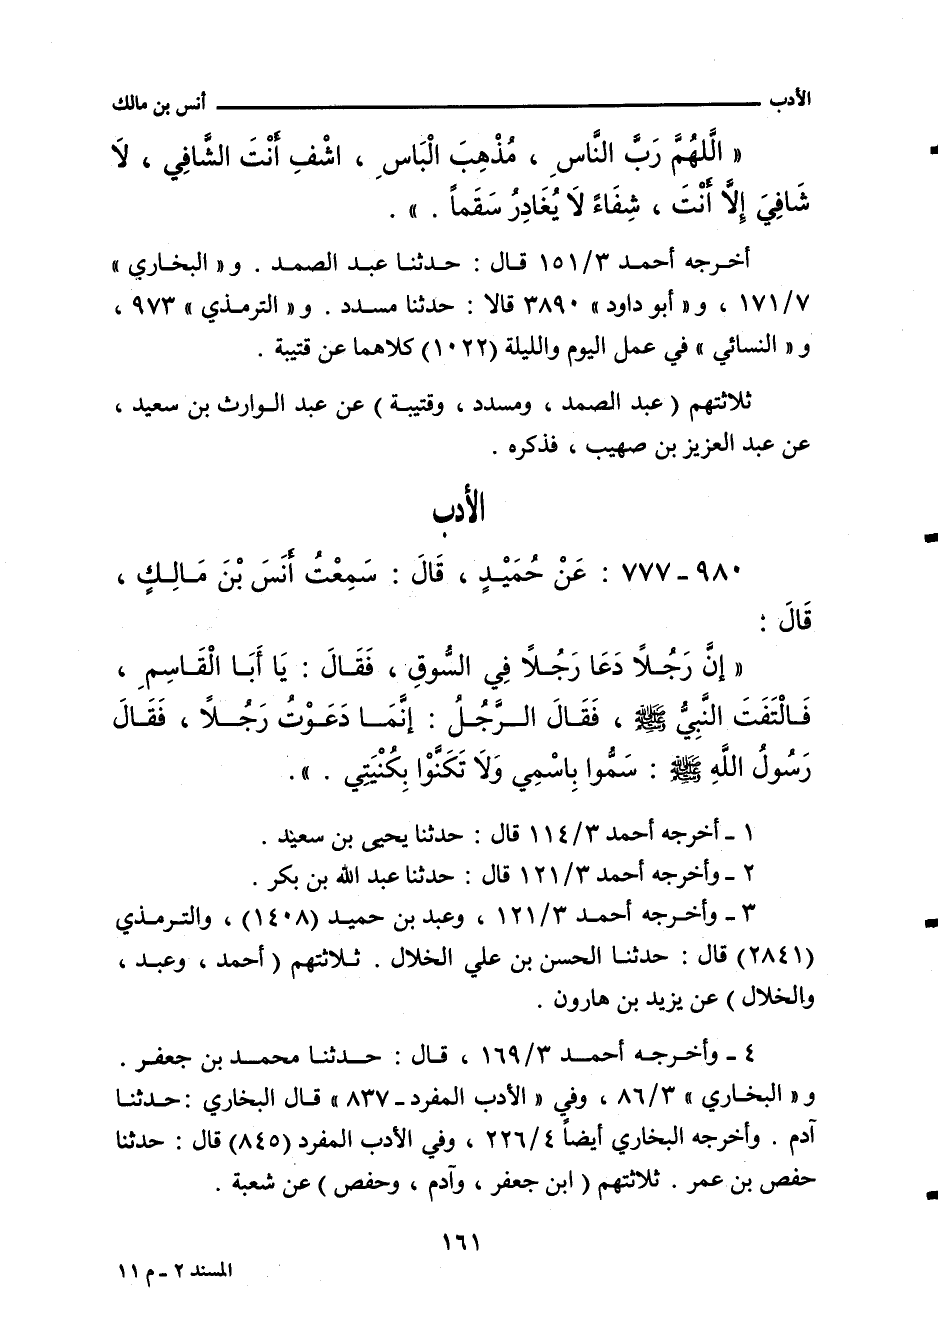 الأدب ـــــــــــــــــــ أنس بن مالك
« الَّلهُمَّ رَبَّ النَّاسِ ، مُذْهِبَ الْبَاسِ ، اشْفِ أَنْتَ الشَّافِي ، لَا
شَافِيَ إِلَّا أَنْتَ ، شِفَاءً لَا يُغَادِرُ سَقَماً . » .
أخرجه أحمد ١٥١/٣ قال : حدثنا عبد الصمد . و « البخاري »
١٧١/٧ ، و « أبو داود » ٣٨٩٠ قالا : حدثنا مسدد . و « الترمذي » ٩٧٣ ،
و « النسائي » في عمل اليوم والليلة (١٠٢٢) كلاهما عن قتيبة .
ثلاثتهم ( عبد الصمد ، ومسدد ، وقتيبة ) عن عبد الوارث بن سعيد ،
عن عبد العزيز بن صهيب ، فذكره .
الأدب
٩٨٠ ـ ٧٧٧ : عَنْ حُمَيْدٍ ، قَالَ : سَمِعْتُ أَنَسَ بْنَ مَالِكٍ ،
قَالَ :
« إِنَّ رَجُلاً دَعَا رَجُلاً فِي السُّوقِ ، فَقَالَ : يَا أَبَا الْقَاسِمِ ،
فَالْتَفَتَ النَّبِيُّ ﷺ ، فَقَالَ الرَّجُلُ : إِنَّمَا دَعَوْتُ رَجُلاً ، فَقَالَ
رَسُولُ اللَّهِ ﷺ : سَمُّوا بِاسْمِي وَلَا تَكَنَّوْا بِكُنْيَتِي . » .
١ ـ أخرجه أحمد ١١٤/٣ قال : حدثنا يحيى بن سعيد .
٢ ـ وأخرجه أحمد ١٢١/٣ قال : حدثنا عبد الله بن بكر .
٣ ـ وأخرجه أحمد ١٢١/٣ ، وعبد بن حميد (١٤٠٨) ، والترمذي
(٢٨٤١) قال : حدثنا الحسن بن علي الخلال . ثلاثتهم ( أحمد ، وعبد ،
والخلال ) عن يزيد بن هارون .
٤ ـ وأخرجه أحمد ١٦٩/٣ ، قال : حدثنا محمد بن جعفر .
و « البخاري » ٨٦/٣ ، وفي « الأدب المفرد ـ ٨٣٧ » قال البخاري : حدثنا
آدم . وأخرجه البخاري أيضاً ٢٢٦/٤ ، وفي الأدب المفرد (٨٤٥) قال : حدثنا
حفص بن عمر . ثلاثتهم ( ابن جعفر ، وآدم ، وحفص ) عن شعبة .
١٦١
المسند ٢ ـ م ١١